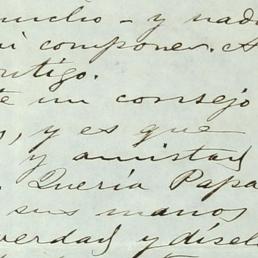 mucho - y nad
componer. A
ontigo.
te un consejo
s, y es que
y amistad
. Quería Papa
sus manos
verdad y dísel